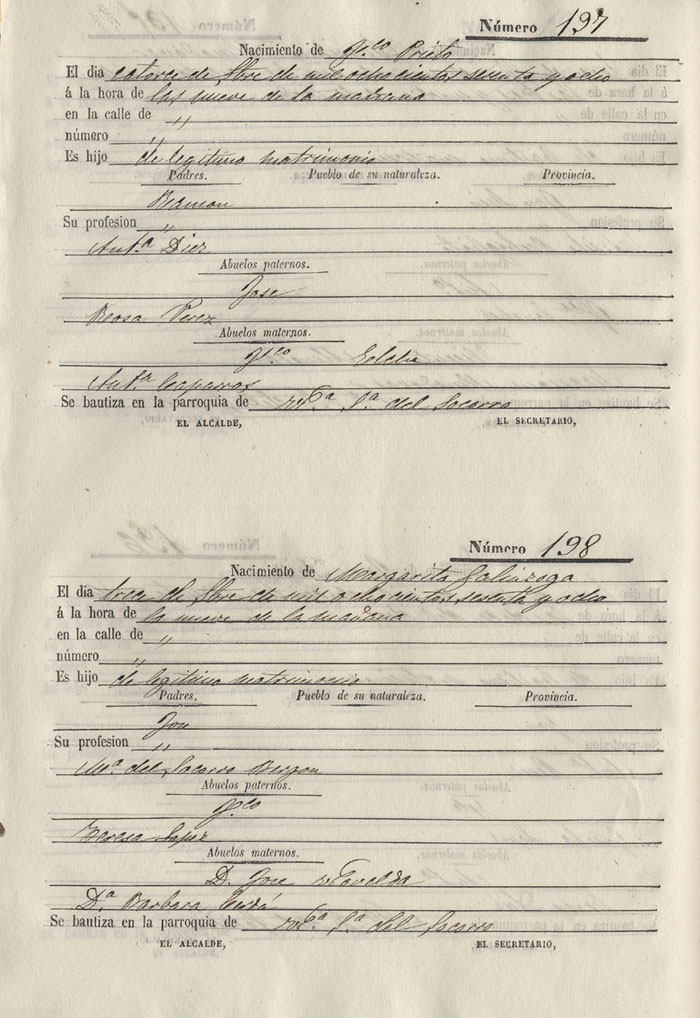 Número 197
Nacimiento de Fco Prieto
El dia catorce de Sbre de mil ochocientos sesenta y ocho
á la hora de las nueve de la mañana
en la calle de "
número "
Es hijo de legitimo matrimonio
Padres. Pueblo de su naturaleza. Provincia.
Ramon
Su profesion "
Anta Diez
Abuelos paternos.
Jose
Rosa Perez
Abuelos maternos.
Fco
Anta Caparros
Se bautiza en la parroquia de Sa del Socorro
EL ALCALDE, EL SECRETARIO,
Número 198
Nacimiento de Margarita Galinzoga
El dia trece de Sbre de mil ochocientos sesenta y ocho
á la hora de la nueve de la mañana
en la calle de "
número "
Es hijo de legitimo matrimonio
Padres. Pueblo de su naturaleza. Provincia.
Jose
Su profesion "
Ma del Socorro
Abuelos paternos.
Fco
Teresa Lopez
Abuelos maternos.
D. Jose
Da Barbara Cerdá
Se bautiza en la parroquia de Sa del Socorro
EL ALCALDE, EL SECRETARIO,